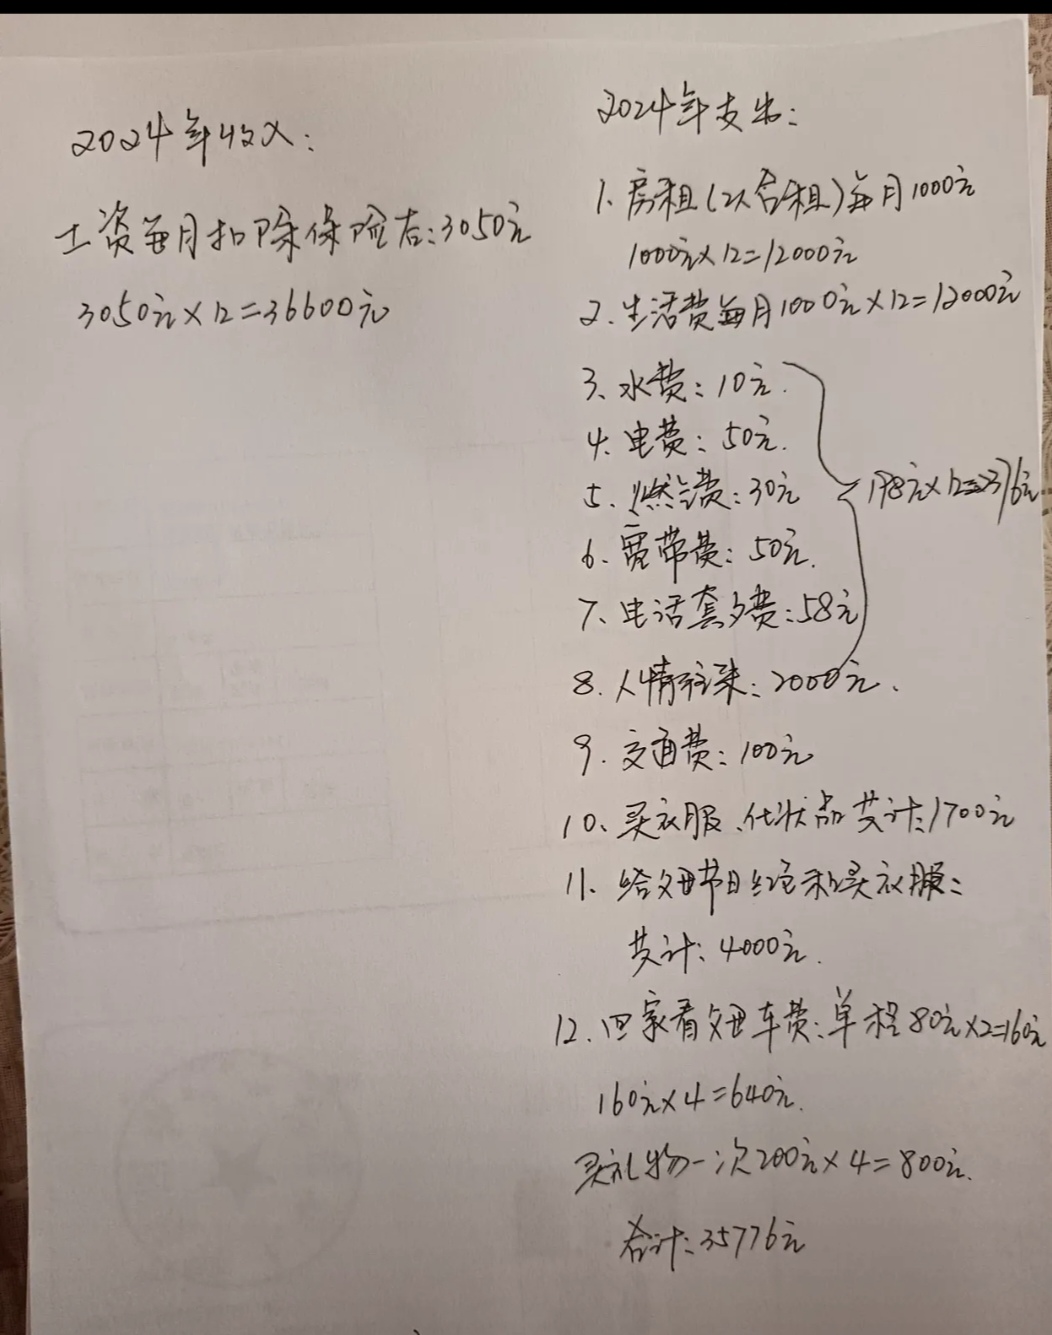 2024年收入:
工资每月扣除保险后:3050元
3050元×12=36600元
2024年支出:
1、房租(2人合租)每月1000元
1000元×12=12000元
2、生活费每月1000元×12=12000元
3、水费:10元.
4、电费:50元.
5、燃气费:30元
6、宽带费:50元.
7、电话套餐费:58元
198元×12=2376元
8、人情往来:2000元.
9、交通费:100元
10、买衣服、化妆品共计:1700元
11、给父母节日红包和买衣服:
共计:4000元.
12、回家看父母车费:单程80元×2=160元
160元×4=640元.
买礼物一次200元×4=800元.
合计:35776元